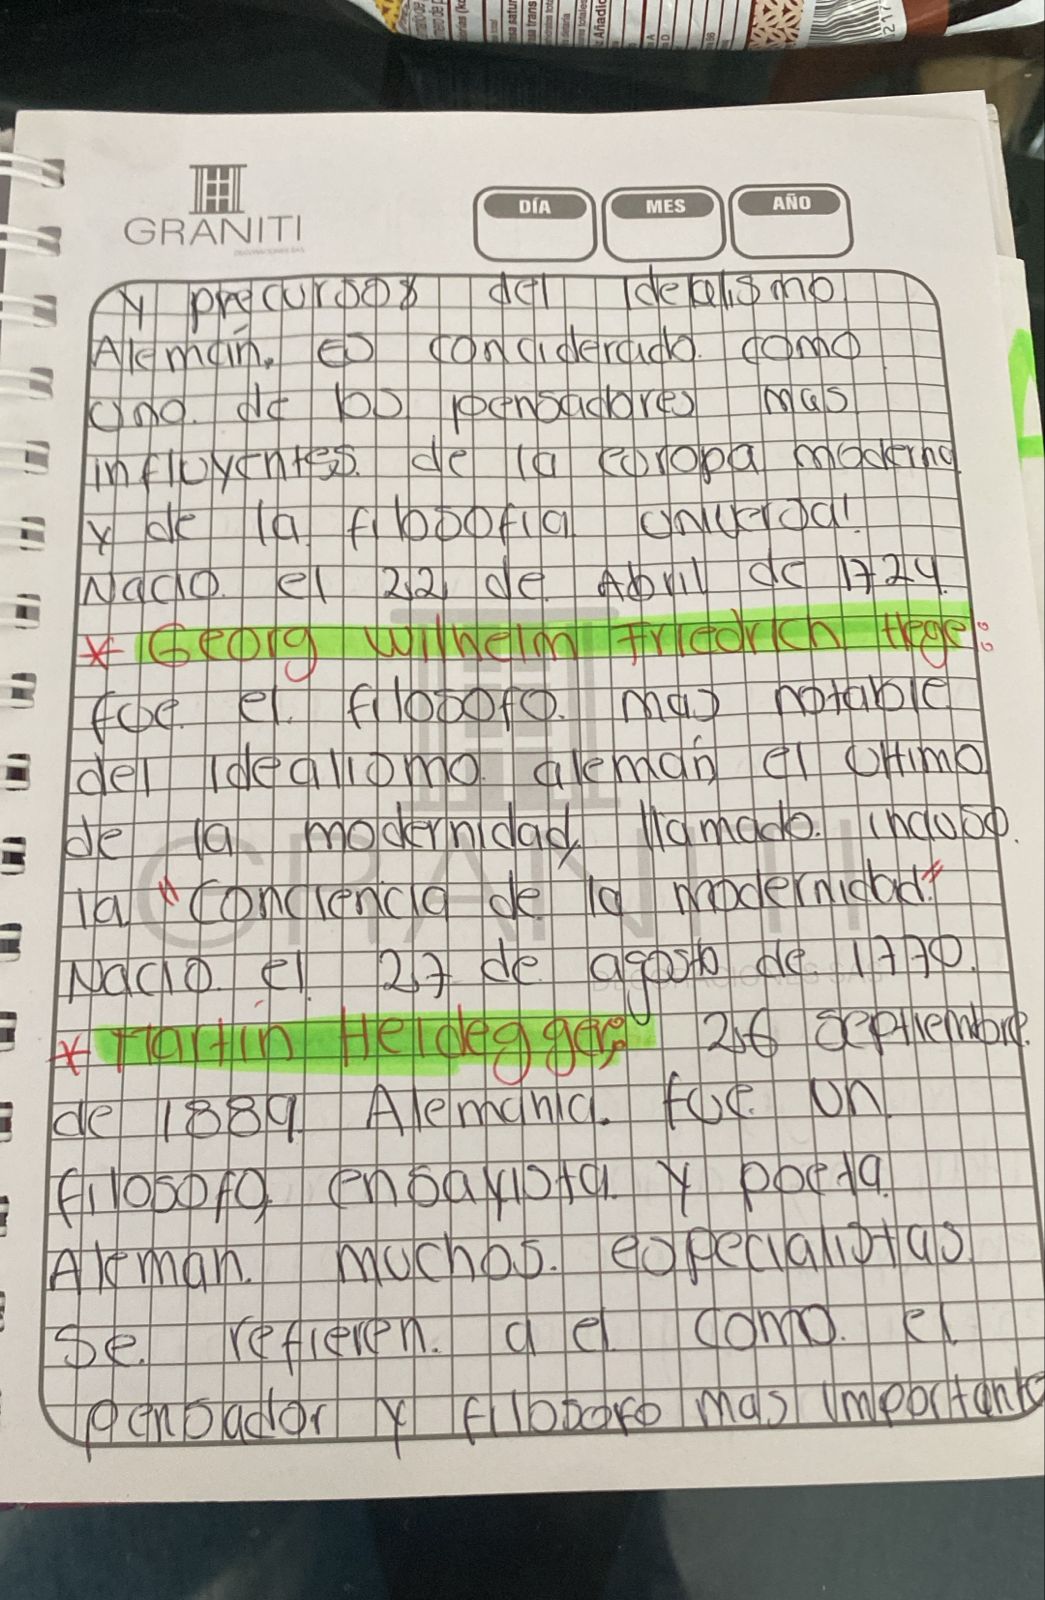 GRANITI
DÍA MES AÑO
y precursor del idealismo
Alemán. es conciderado como
uno de los pensadores mas
influyentes. de la europa moderna
y de la filosofia universal
Nacio el 22 de Abril de 1724.
* Georg Wilhelm Friedrich Hegel:
fue el filosofo mas notable
del idealismo alemán, el ultimo
de la modernidad, llamado incluso
la "Conciencia de la modernidad"
Nacio el 27 de agosto de 1770.
* Martin Heidegger: 26 septiembre
de 1889 Alemania. fue un
filosofo, ensayista y poeta
Aleman. muchos especialistas
se refieren a el como el
pensador y filosofo mas importante